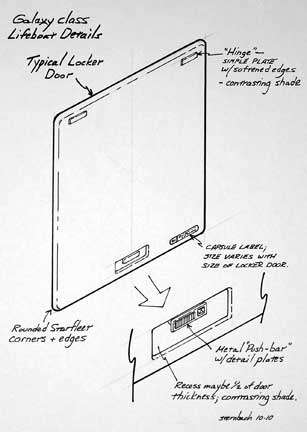 Galaxy class
Lifeboat Details
Typical Locker
Door
"Hinge" —
SIMPLE PLATE
w/softened edges
- contrasting shade
CAPSULE LABEL;
SIZE VARIES WITH
SIZE OF LOCKER DOOR.
Rounded Starfleet
corners + edges
Metal "Push-bar"
w/detail plates
Recess maybe ½ of door
thickness; contrasting shade.
sternbach 10-10